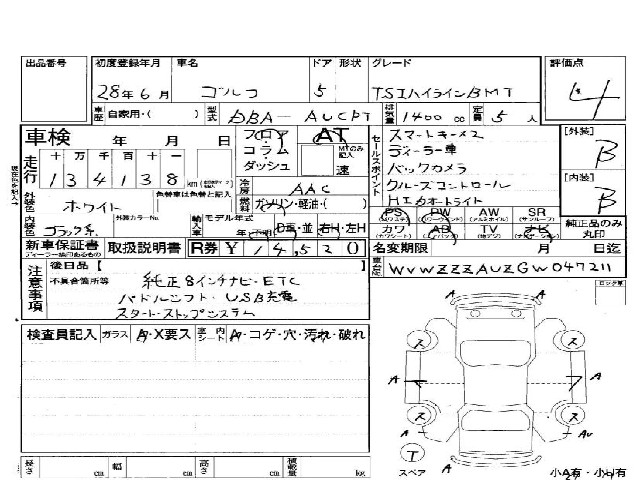 出品番号 初度登録年月 車名 ドア 形状 グレード 評価点
28年6月 ゴルフ 5 TSIハイラインBMT 4
車歴 自家用・( ) 型式 DBA-AUCPT 排気量 1400 cc 定員 5 人
車検 年 月 日 フロア コラム ダッシュ AT MTのみ記入 速
セールスポイント スマートキー×2
ディーラー車
バックカメラ
クルーズコントロール
HIDオートライト
[外装] B
[内装] B
走行 十 万 千 百 十 一
134138 km
冷房 AAC
外装色 ホワイト 色替車は色替と記入 燃料 ガソリン・軽油・( )
内装色 ブラック系 外装カラーNo. 輸入車 モデル年式 年・不明 D車・並 右H・左H
PS PW AW SR
(パワステ) (パワーウィンド) (アルミホイル) (サンルーフ)
カワ AB TV ナビ
純正品のみ丸印
新車保証書 取扱説明書 R券 ¥14,520 名変期限 月 日迄
注意事項 後日品【 】
不具合箇所等 純正8インチナビ・ETC
パドルシフト・USB充電
スタートストップシステム
車台No. WVWZZZAUZGW047211
ロック車
検査員記入 ガラス A・X要ス 室内シート A・コゲ・穴・汚れ・破れ
A ス ス A A A ス ス A AU A
T スペア
小A有・小U有
長さ cm 幅 cm 高さ cm 積載量 kg